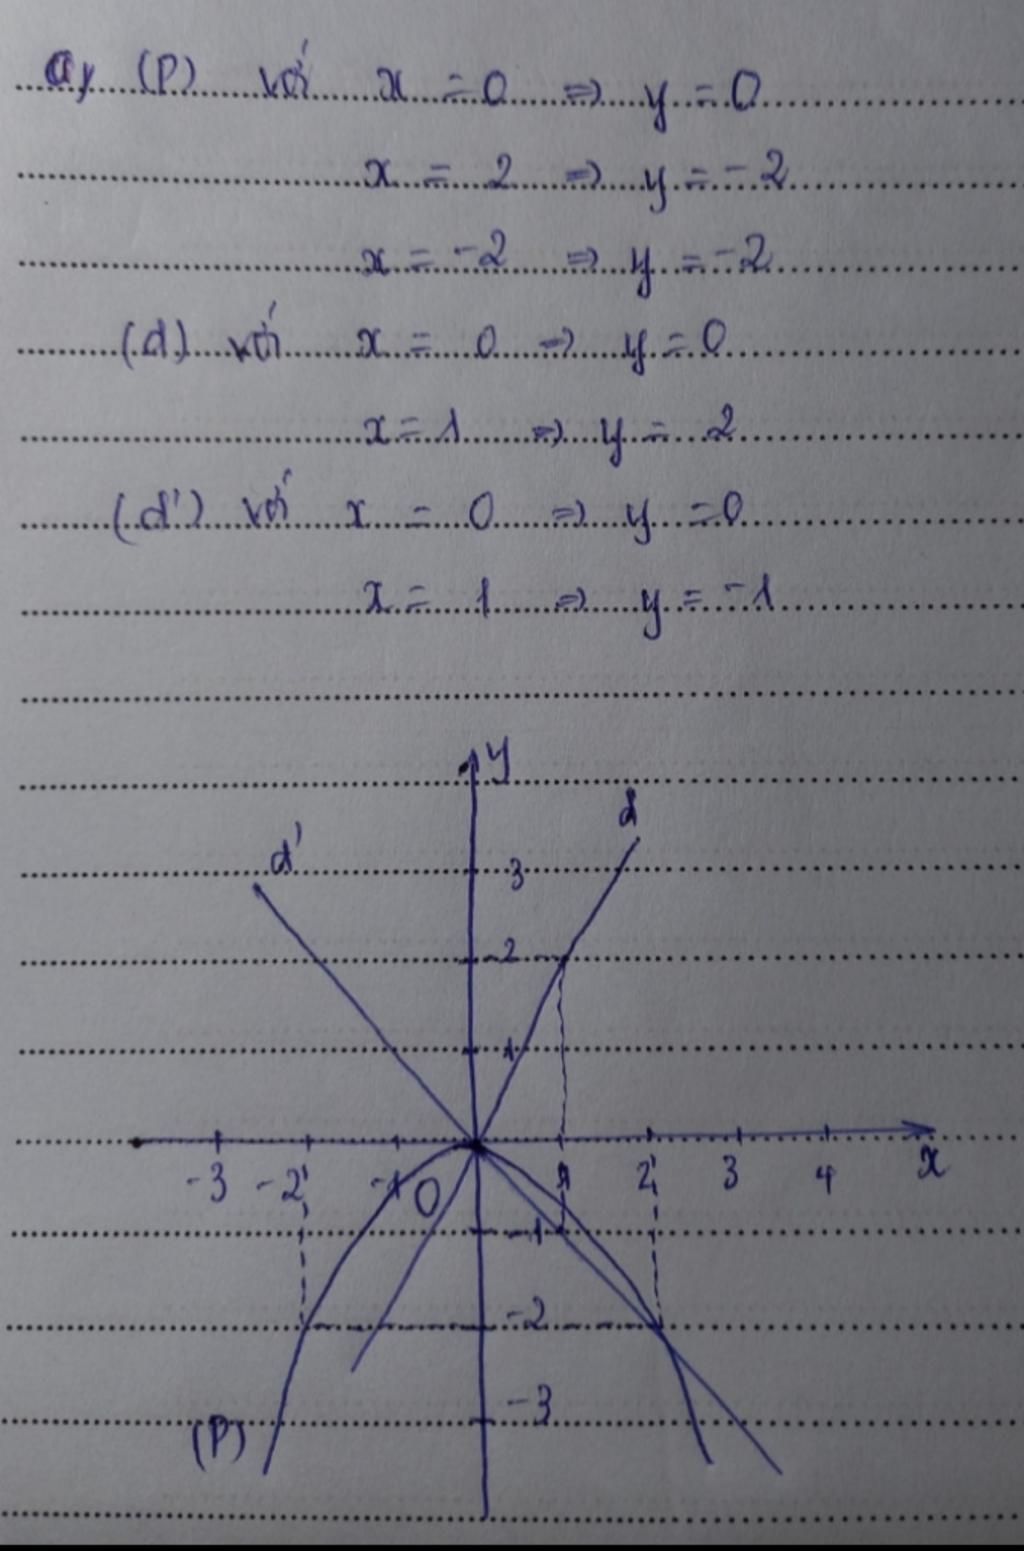 a, (P) với x = 0 ⇒ y = 0
x = 2 ⇒ y = -2
x = -2 ⇒ y = -2
(d) với x = 0 ⇒ y = 0
x = 1 ⇒ y = 2
(d') với x = 0 ⇒ y = 0
x = 1 ⇒ y = -1
y
d
d'
3
2
1
-3 -2 -1 O 1 2 3 4 x
-1
-2
-3
(P)